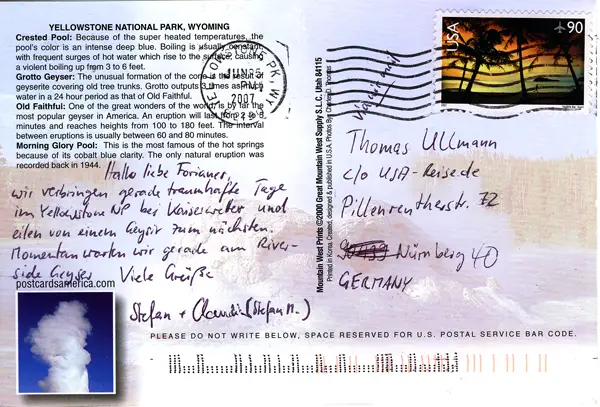 YELLOWSTONE NATIONAL PARK, WYOMING
Crested Pool: Because of the super heated temperatures, the
pool's color is an intense deep blue. Boiling is usually constant,
with frequent surges of hot water which rise to the surface, causing
a violent boiling up from 3 to 6 feet.
Grotto Geyser: The unusual formation of the cone is the result of
geyserite covering old tree trunks. Grotto outputs 3 times as much
water in a 24 hour period as that of Old Faithful.
Old Faithful: One of the great wonders of the world, is by far the
most popular geyser in America. An eruption will last from 2 to 5
minutes and reaches heights from 100 to 180 feet. The interval
between eruptions is usually between 60 and 80 minutes.
Morning Glory Pool: This is the most famous of the hot springs
because of its cobalt blue clarity. The only natural eruption was
recorded back in 1944.
Hallo liebe Forianer,
wir verbringen gerade traumhafte Tage
im Yellowstone NP bei Kaiserwetter und
eilen von einem Geysir zum nächsten.
Momentan warten wir gerade am River-
side Geyser Viele Grüße
Stefan + Claudia (Stefan M.)
postcardsamerica.com
JUN
PM
2007
Mountain West Prints ©2000 Great Mountain West Supply S.L.C. Utah 84115
Printed in Korea. Created, designed & published in U.S.A. Photos By: Charles D. Thomas
USA
90
Thomas Ullmann
c/o USA-Reise.de
Pillenreutherstr. 72
Nürnberg 40
GERMANY
PLEASE DO NOT WRITE BELOW, SPACE RESERVED FOR U.S. POSTAL SERVICE BAR CODE.